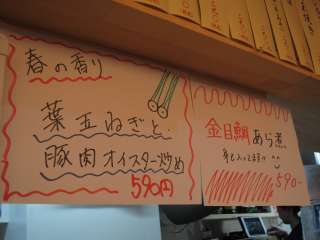 春の香り
葉玉ねぎと
豚肉オイスター炒め
590円
金目鯛あら煮
身も入ってます!!
590-